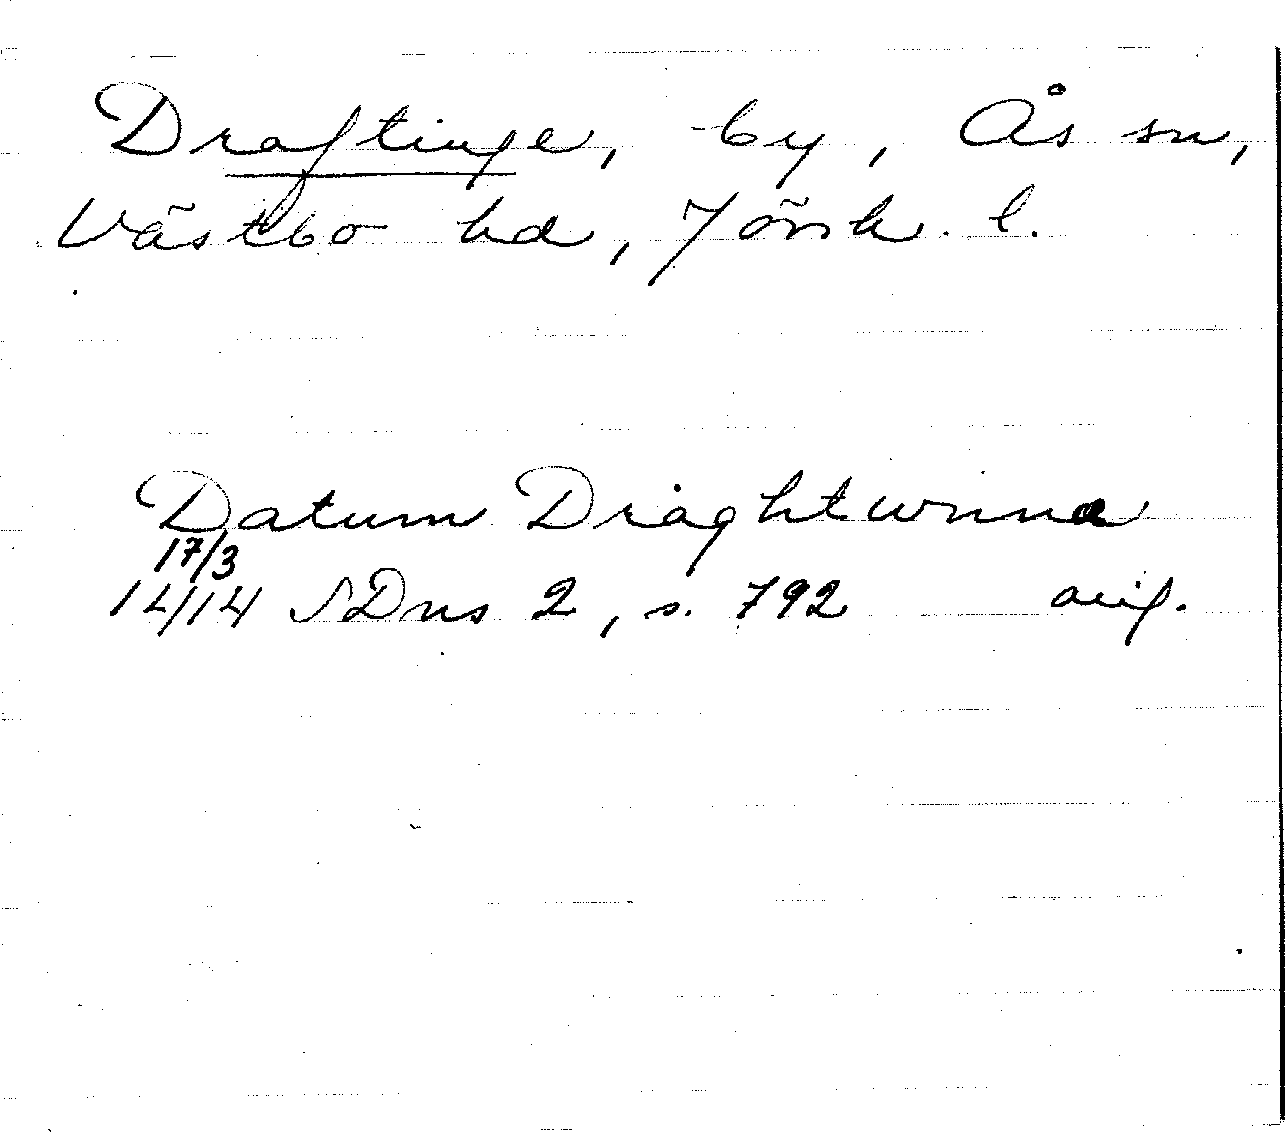 Draftinge, by, Ås sn,
Västbo hd, Jönk. l.
Datum Draghtwnna
17/3
1414 SDns 2, s. 792 orig.